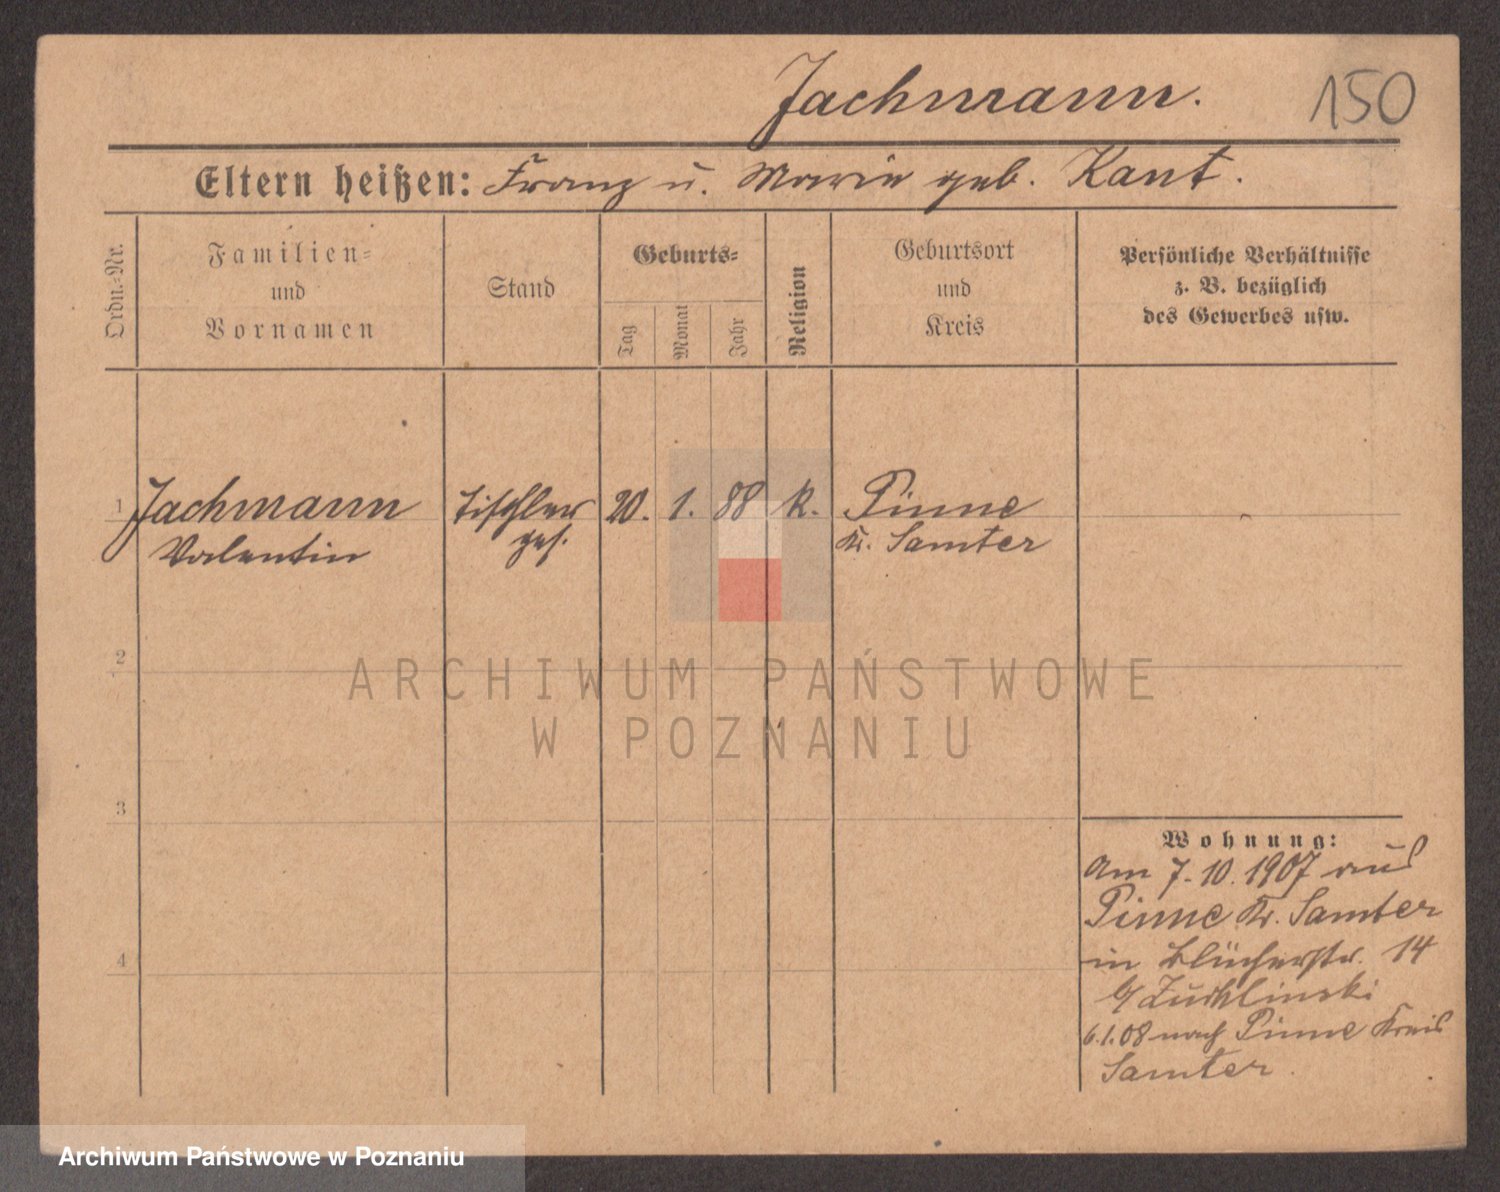 Jachmann.
150
Eltern heißen: Franz u. Marie geb. Kant.
Ordn.=Nr.
Familien=
und
Vornamen
Stand
Geburts=
Tag
Monat
Jahr
Religion
Geburtsort
und
Kreis
Persönliche Verhältnisse
z. B. bezüglich
des Gewerbes usw.
1
Jachmann
Valentin
Tischler
ges.
20.
1.
88
k.
Pinne
Kr. Samter
2
3
4
Wohnung:
Am 7.10.1907 aus
Pinne Kr. Samter
in Blücherstr. 14
6.1.08 nach Pinne Kreis
Samter.
ARCHIWUM PAŃSTWOWE
W POZNANIU
Archiwum Państwowe w Poznaniu